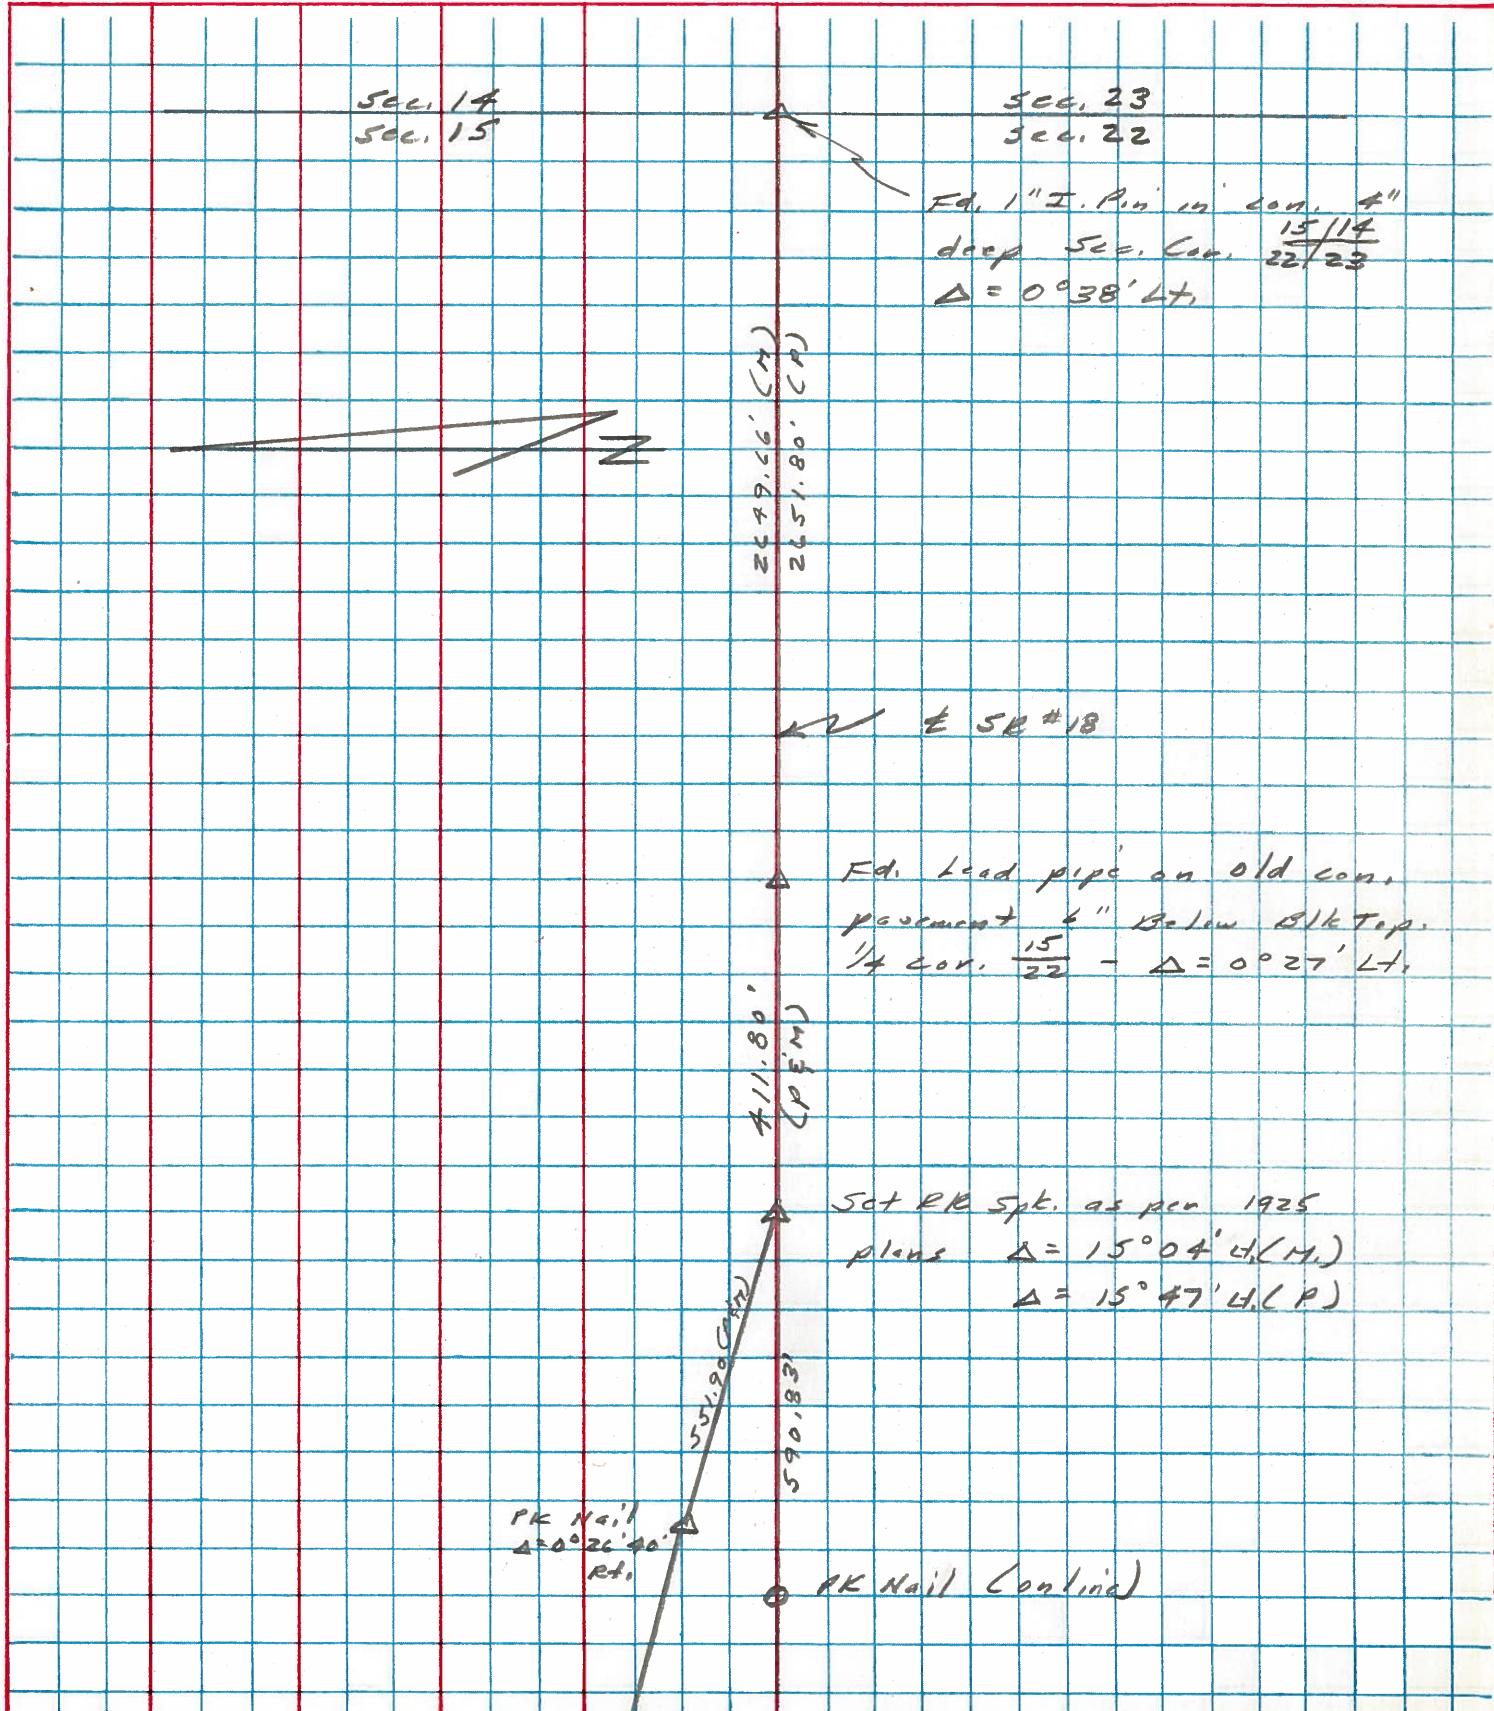 Sec. 14
Sec. 15
Sec. 23
Sec. 22
Fd. 1" I. Pin in con. 4"
deep Sec. Cor. 15/14
22/23
Δ = 0°38' Lt.
2649.66' (M)
2651.80' (P)
N
℄ SR #18
Fd. Lead pipe on old con.
pavement 6" Below Blk Top.
1/4 cor. 15/22 - Δ = 0°27' Lt.
411.80'
(P & M)
Set RR Spk. as per 1925
plans Δ = 15°04' Lt. (M.)
Δ = 15°47' Lt. (P)
551.90 (P&M)
590.83'
PK Nail
Δ=0°26'40"
Rt.
PK Nail (online)